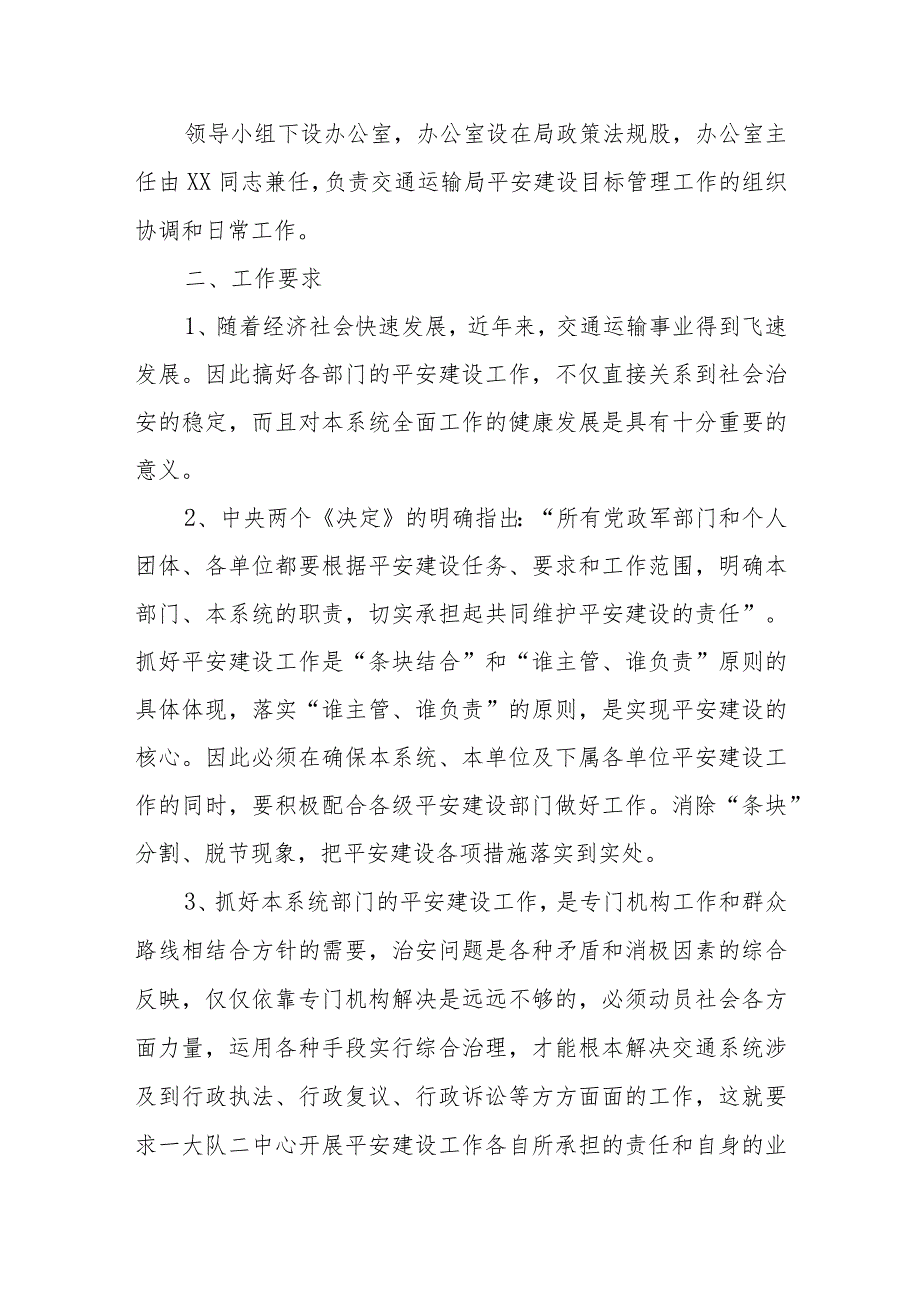 领导小组下设办公室，办公室设在局政策法规股，办公室主
任由 XX 同志兼任，负责交通运输局平安建设目标管理工作的组织
协调和日常工作。
二、工作要求
1、随着经济社会快速发展，近年来，交通运输事业得到飞速
发展。因此搞好各部门的平安建设工作，不仅直接关系到社会治
安的稳定，而且对本系统全面工作的健康发展是具有十分重要的
意义。
2、中央两个《决定》的明确指出：“所有党政军部门和个人
团体、各单位都要根据平安建设任务、要求和工作范围，明确本
部门、本系统的职责，切实承担起共同维护平安建设的责任”。
抓好平安建设工作是“条块结合”和“谁主管、谁负责”原则的
具体体现，落实“谁主管、谁负责”的原则，是实现平安建设的
核心。因此必须在确保本系统、本单位及下属各单位平安建设工
作的同时，要积极配合各级平安建设部门做好工作。消除“条块”
分割、脱节现象，把平安建设各项措施落实到实处。
3、抓好本系统部门的平安建设工作，是专门机构工作和群众
路线相结合方针的需要，治安问题是各种矛盾和消极因素的综合
反映，仅仅依靠专门机构解决是远远不够的，必须动员社会各方
面力量，运用各种手段实行综合治理，才能根本解决交通系统涉
及到行政执法、行政复议、行政诉讼等方方面面的工作，这就要
求一大队二中心开展平安建设工作各自所承担的责任和自身的业